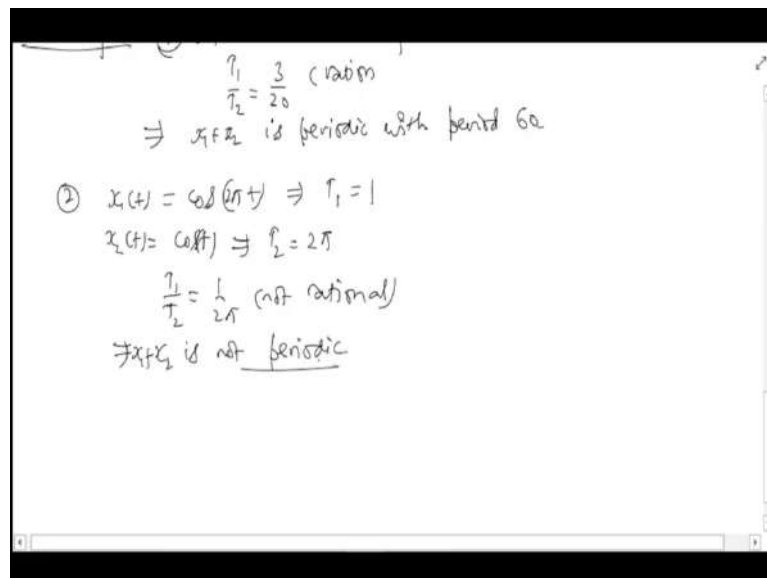 T₁/T₂ = 3/20 (ration
⇒ x₁+x₂ is periodic with period 60
② x₁(t) = cos(2πt) ⇒ T₁ = 1
x₂(t) = cos(t) ⇒ T₂ = 2π
T₁/T₂ = 1/2π (not rational)
⇒ x₁+x₂ is not periodic